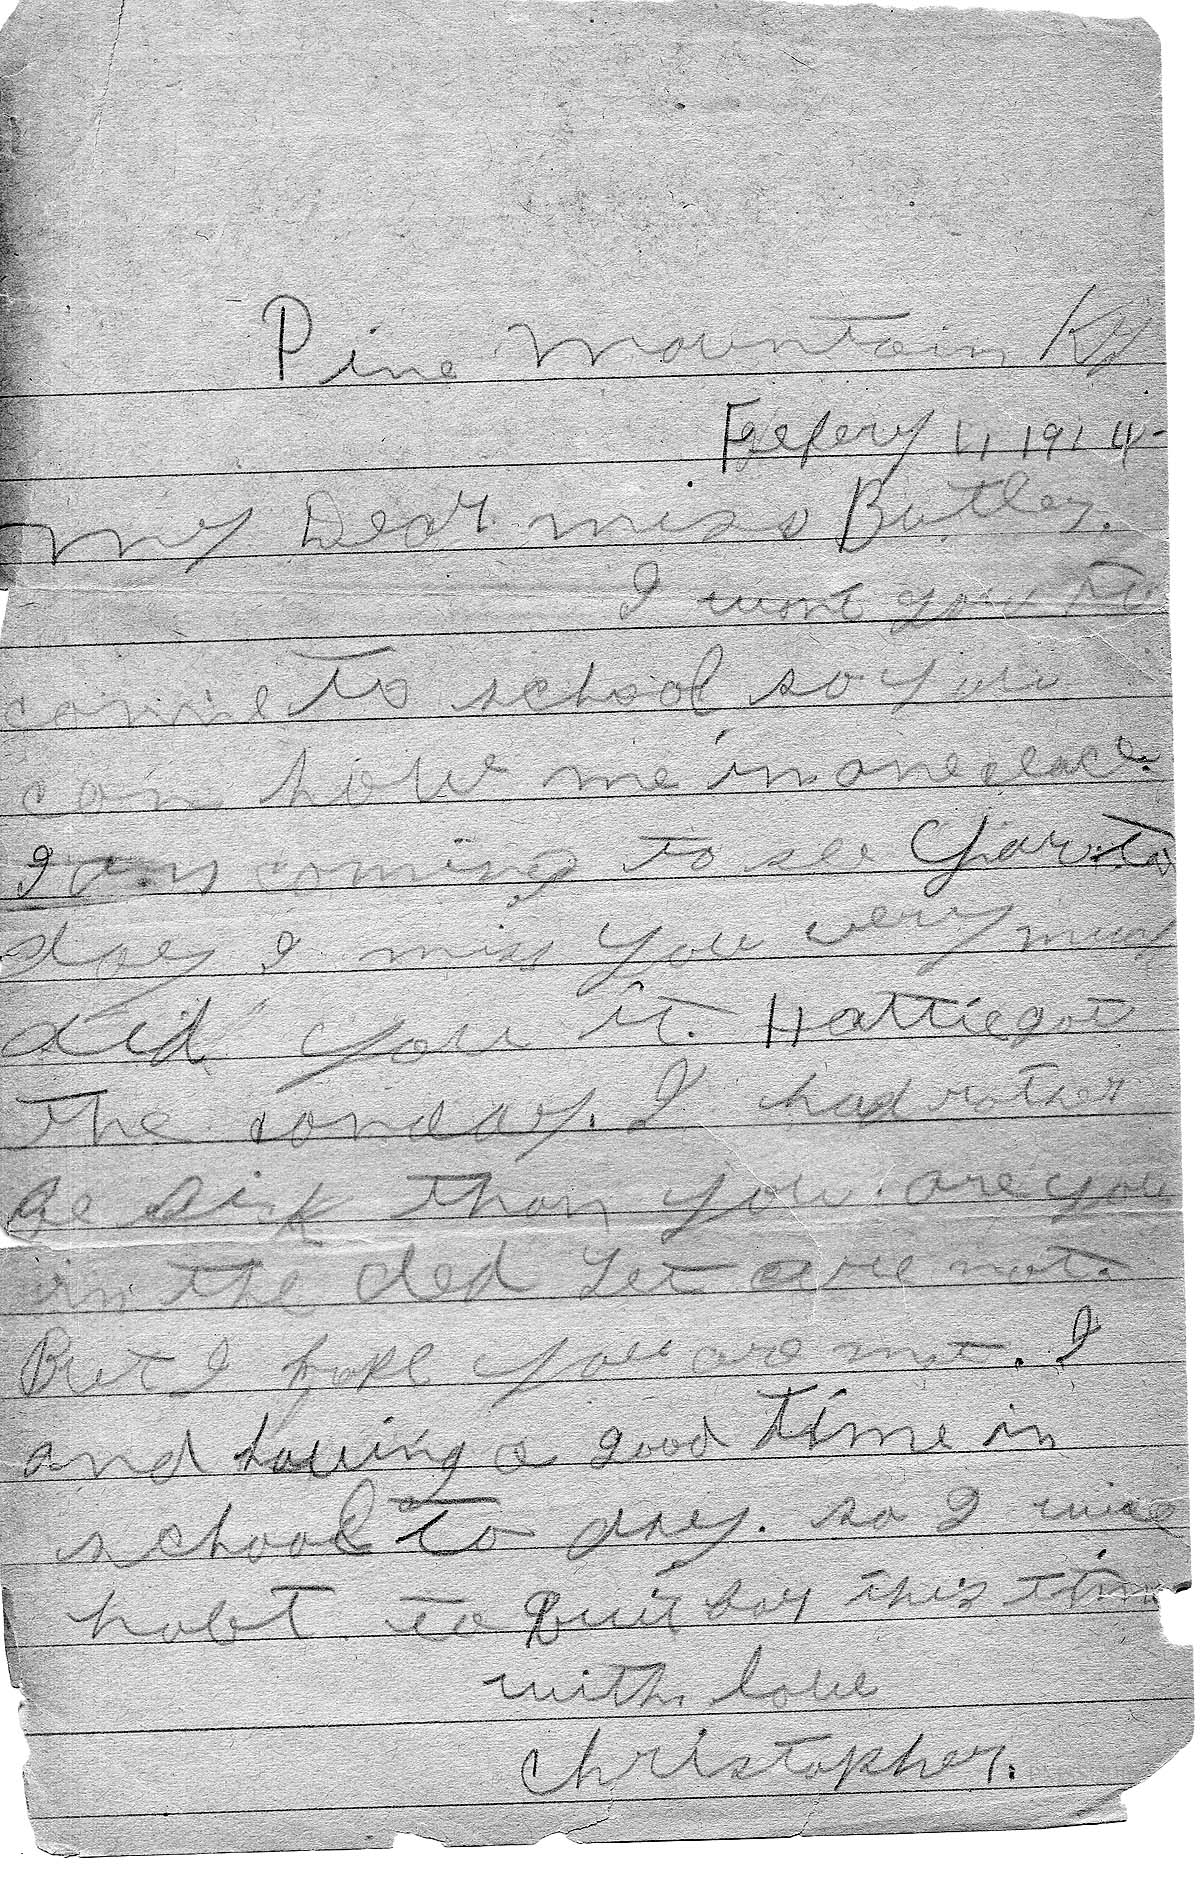 Pine Mountain Ky
Feefery 4 1914-
my Dear miss Butler.
I wont you to
come to school so you
can hole me in one place.
I am coming to see you to
day I miss you very much
did you it. Hattie got
the conday. I had rother
Be sick than you. are you
in the Bed yet are not.
But I hope you are not. I
and having a good time in
school to day. so I wise
hobt to Quit boy this time
with love
christopher.